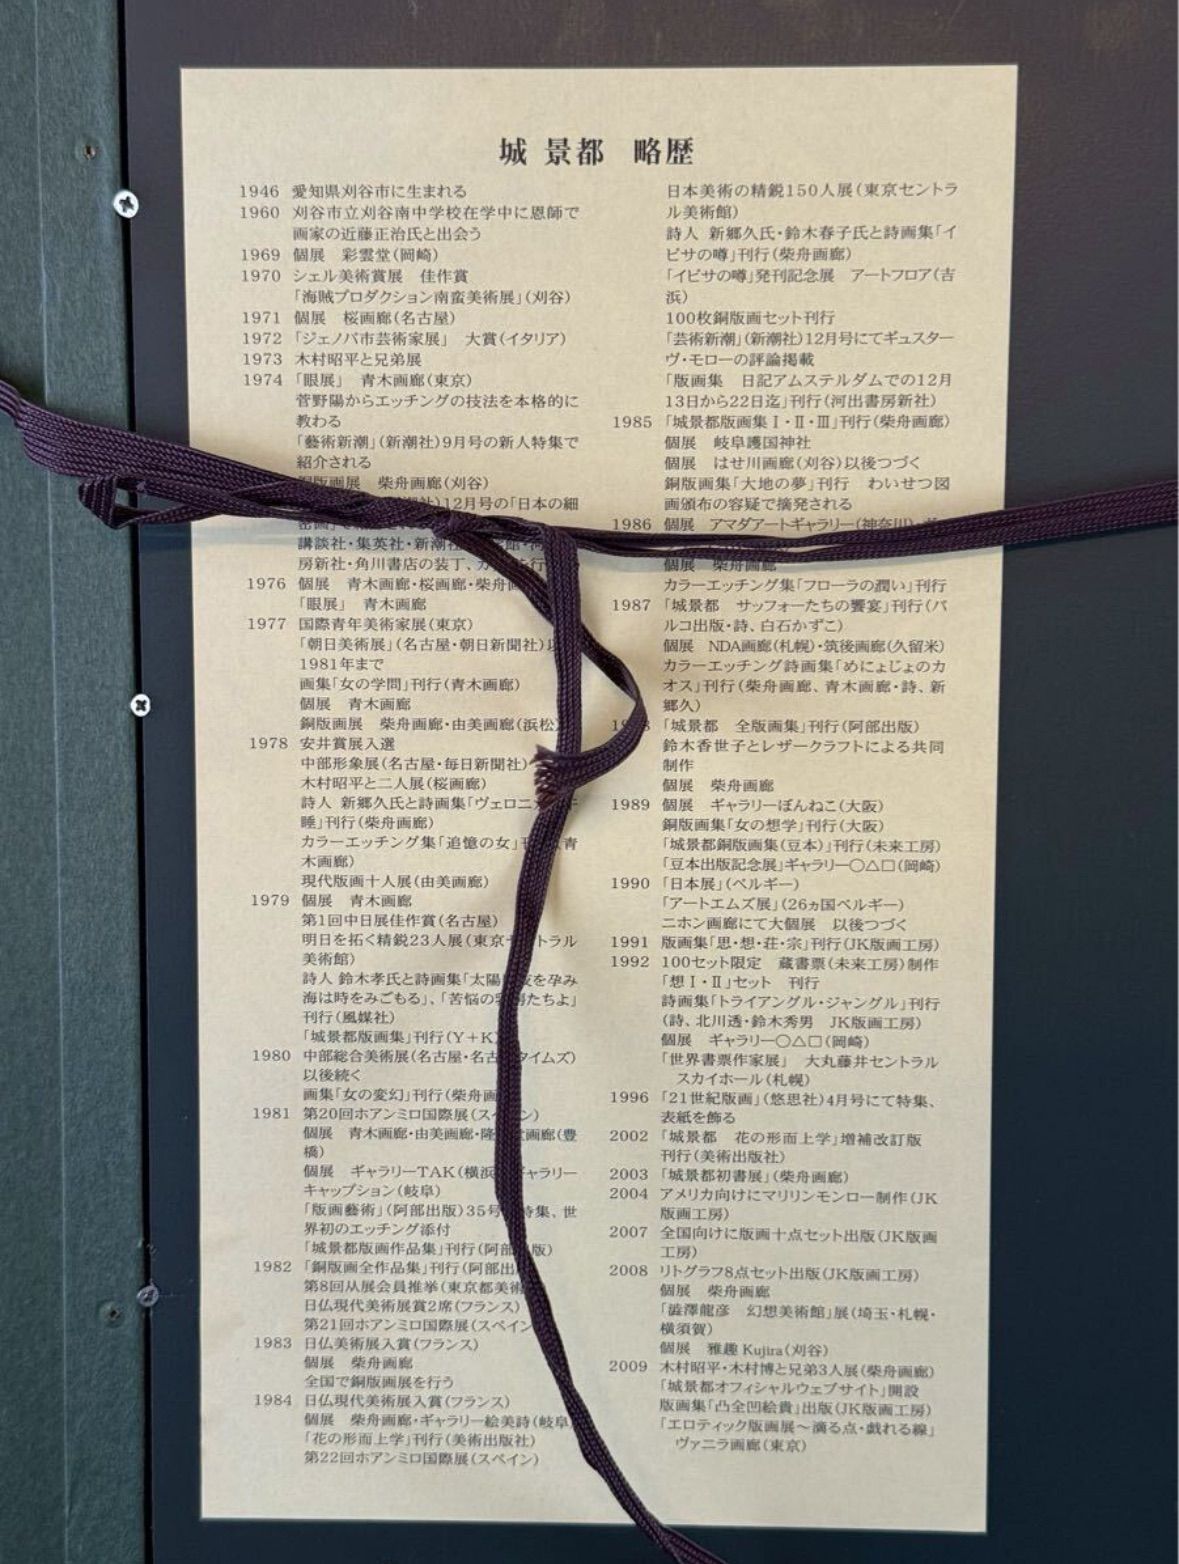 城 景都 略歴
1946 愛知県刈谷市に生まれる
1960 刈谷市立刈谷南中学校在学中に恩師で
画家の近藤正治氏と出会う
1969 個展 彩雲堂(岡崎)
1970 シェル美術賞展 佳作賞
「海賊プロダクション南蛮美術展」(刈谷)
1971 個展 桜画廊(名古屋)
1972 「ジェノバ市芸術家展」 大賞(イタリア)
1973 木村昭平と兄弟展
1974 「眼展」 青木画廊(東京)
菅野陽からエッチングの技法を本格的に
教わる
「藝術新潮」(新潮社)9月号の新人特集で
紹介される
版画展 柴舟画廊(刈谷)
社)12月号の「日本の細
講談社・集英社・新潮
房新社・角川書店の装丁、カ
1976 個展 青木画廊・桜画廊・柴舟
「眼展」 青木画廊
1977 国際青年美術家展(東京)
「朝日美術展」(名古屋・朝日新聞社)
1981年まで
画集「女の学問」刊行(青木画廊)
個展 青木画廊
銅版画展 柴舟画廊・由美画廊(浜松
1978 安井賞展入選
中部形象展(名古屋・毎日新聞社)
木村昭平と二人展(桜画廊)
詩人 新郷久氏と詩画集「ヴェロニ
睡」刊行(柴舟画廊)
カラーエッチング集「追憶の女」 青
木画廊)
現代版画十人展(由美画廊)
1979 個展 青木画廊
第1回中日展佳作賞(名古屋)
明日を拓く精鋭23人展(東京 トラル
美術館)
詩人 鈴木孝氏と詩画集「太陽 を孕み
海は時をみごもる」、「苦悩の たちよ」
刊行(風媒社)
「城景都版画集」刊行(Y+K
1980 中部総合美術展(名古屋・名古 タイムズ)
以後続く
画集「女の変幻」刊行(柴舟画
1981 第20回ホアンミロ国際展(スペイン)
個展 青木画廊・由美画廊・ 画廊(豊
橋)
個展 ギャラリーTAK(横浜 ャラリー
キャップション(岐阜)
「版画藝術」(阿部出版)35号 特集、世
界初のエッチング添付
「城景都版画作品集」刊行(阿部 版)
1982 「銅版画全作品集」刊行(阿部出
第8回从展会員推挙(東京都美術
日仏現代美術展賞2席(フランス)
第21回ホアンミロ国際展(スペイン
1983 日仏美術展入賞(フランス)
個展 柴舟画廊
全国で銅版画展を行う
1984 日仏現代美術展入賞(フランス)
個展 柴舟画廊・ギャラリー絵美詩(岐阜
「花の形而上学」刊行(美術出版社)
第22回ホアンミロ国際展(スペイン)
日本美術の精鋭150人展(東京セントラ
ル美術館)
詩人 新郷久氏・鈴木春子氏と詩画集「イ
ビサの噂」刊行(柴舟画廊)
「イビサの噂」発刊記念展 アートフロア(吉
浜)
100枚銅版画セット刊行
「芸術新潮」(新潮社)12月号にてギュスター
ヴ・モローの評論掲載
「版画集 日記アムステルダムでの12月
13日から22日迄」刊行(河出書房新社)
1985 「城景都版画集Ⅰ・Ⅱ・Ⅲ」刊行(柴舟画廊)
個展 岐阜護国神社
個展 はせ川画廊(刈谷)以後つづく
銅版画集「大地の夢」刊行 わいせつ図
画頒布の容疑で摘発される
1986 個展 アマダアートギャラリー(神奈川)
個展 柴舟画廊
カラーエッチング集「フローラの潤い」刊行
1987 「城景都 サッフォーたちの饗宴」刊行(パ
ルコ出版・詩、白石かずこ)
個展 NDA画廊(札幌)・筑後画廊(久留米)
カラーエッチング詩画集「めにょじょのカ
オス」刊行(柴舟画廊、青木画廊・詩、新
郷久)
「城景都 全版画集」刊行(阿部出版)
鈴木香世子とレザークラフトによる共同
制作
個展 柴舟画廊
1989 個展 ギャラリーぼんねこ(大阪)
銅版画集「女の想学」刊行(大阪)
「城景都銅版画集(豆本)」刊行(未来工房)
「豆本出版記念展」ギャラリー○△□(岡崎)
1990 「日本展」(ベルギー)
「アートエムズ展」(26ヵ国ベルギー)
ニホン画廊にて大個展 以後つづく
1991 版画集「思・想・荘・宗」刊行(JK版画工房)
1992 100セット限定 蔵書票(未来工房)制作
「想Ⅰ・Ⅱ」セット 刊行
詩画集「トライアングル・ジャングル」刊行
(詩、北川透・鈴木秀男 JK版画工房)
個展 ギャラリー○△□(岡崎)
「世界書票作家展」 大丸藤井セントラル
スカイホール(札幌)
1996 「21世紀版画」(悠思社)4月号にて特集、
表紙を飾る
2002 「城景都 花の形而上学」増補改訂版
刊行(美術出版社)
2003 「城景都初書展」(柴舟画廊)
2004 アメリカ向けにマリリンモンロー制作(JK
版画工房)
2007 全国向けに版画十点セット出版(JK版画
工房)
2008 リトグラフ8点セット出版(JK版画工房)
個展 柴舟画廊
「澁澤龍彦 幻想美術館」展(埼玉・札幌・
横須賀)
個展 雅趣 Kujira(刈谷)
2009 木村昭平・木村博と兄弟3人展(柴舟画廊)
「城景都オフィシャルウェブサイト」開設
版画集「凸全凹絵貴」出版(JK版画工房)
「エロティック版画展～滴る点・戯れる線」
ヴァニラ画廊(東京)